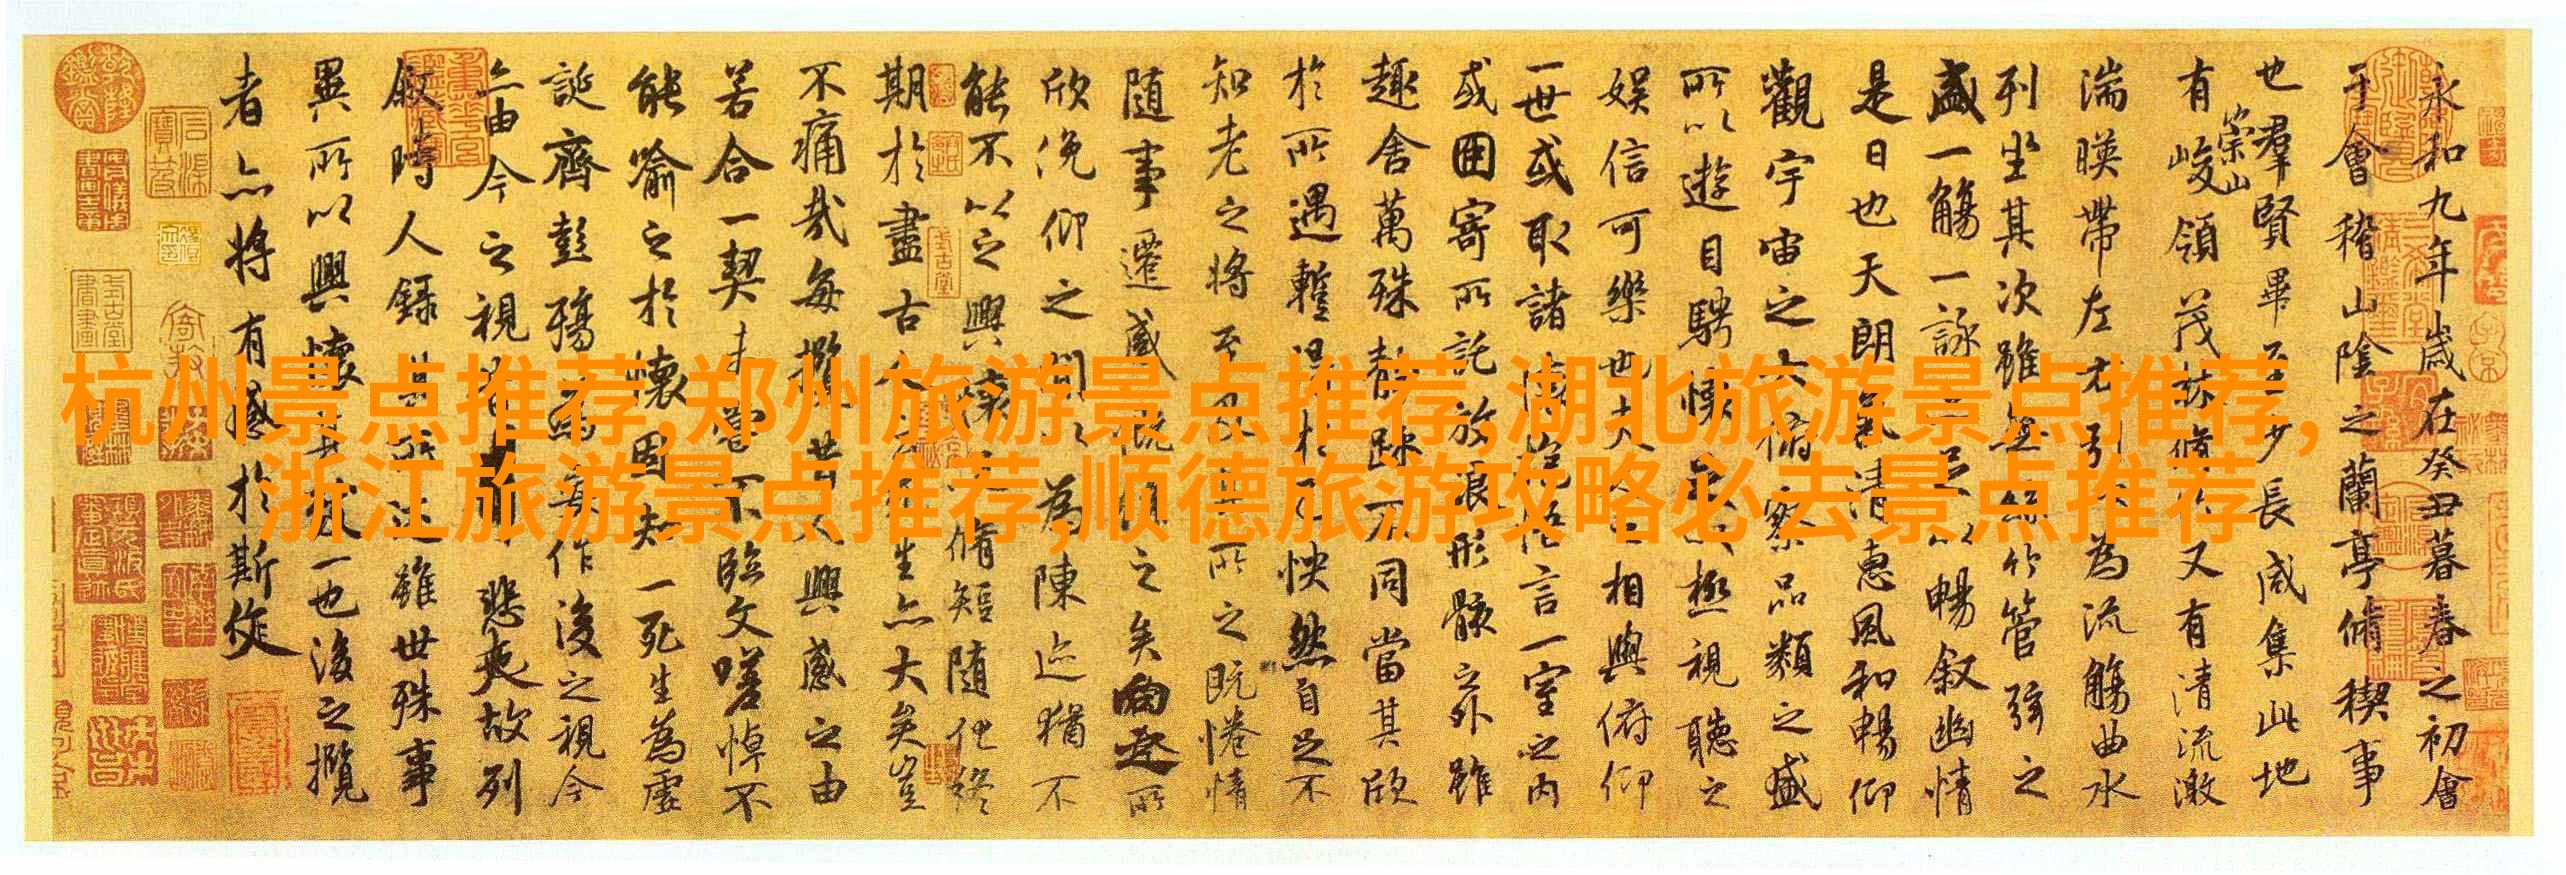 杭州景点推荐,郑州旅游景点推荐,湖北旅游景点推荐,
浙江旅游景点推荐,顺德旅游攻略必去景点推荐
永和九年歲在癸丑暮春之初會
于會稽山陰之蘭亭脩稧事
也羣賢畢至少長咸集此地
有崇山峻領茂林脩竹又有清流激
湍暎帶左右引以為流觴曲水
列坐其次雖無絲竹管弦之
盛一觴一詠亦足以暢叙幽情
是日也天朗氣清惠風和暢仰
觀宇宙之大俯察品類之盛
所以遊目騁懷足以極視聽之
娛信可樂也夫人之相與俯仰
一世或取諸懷抱悟言一室之內
或因寄所託放浪形骸之外雖
趣舍萬殊靜躁不同當其欣
於所遇暫得於己怏然自足不
知老之將至及其所之既惓情
隨事遷感慨係之矣向之所
欣俛仰之間以為陳迹猶不
能不以之興懷況脩短隨化終
期於盡古人云死生亦大矣豈
不痛哉每攬昔人興感之由
若合一契未嘗不臨文嗟悼不
能喻之於懷固知一死生為虛
誕齊彭殤為妄作後之視今
亦由今之視昔悲夫故列
敘時人錄其所述雖世殊事
異所以興懷其致一也後之攬
者亦將有感於斯文